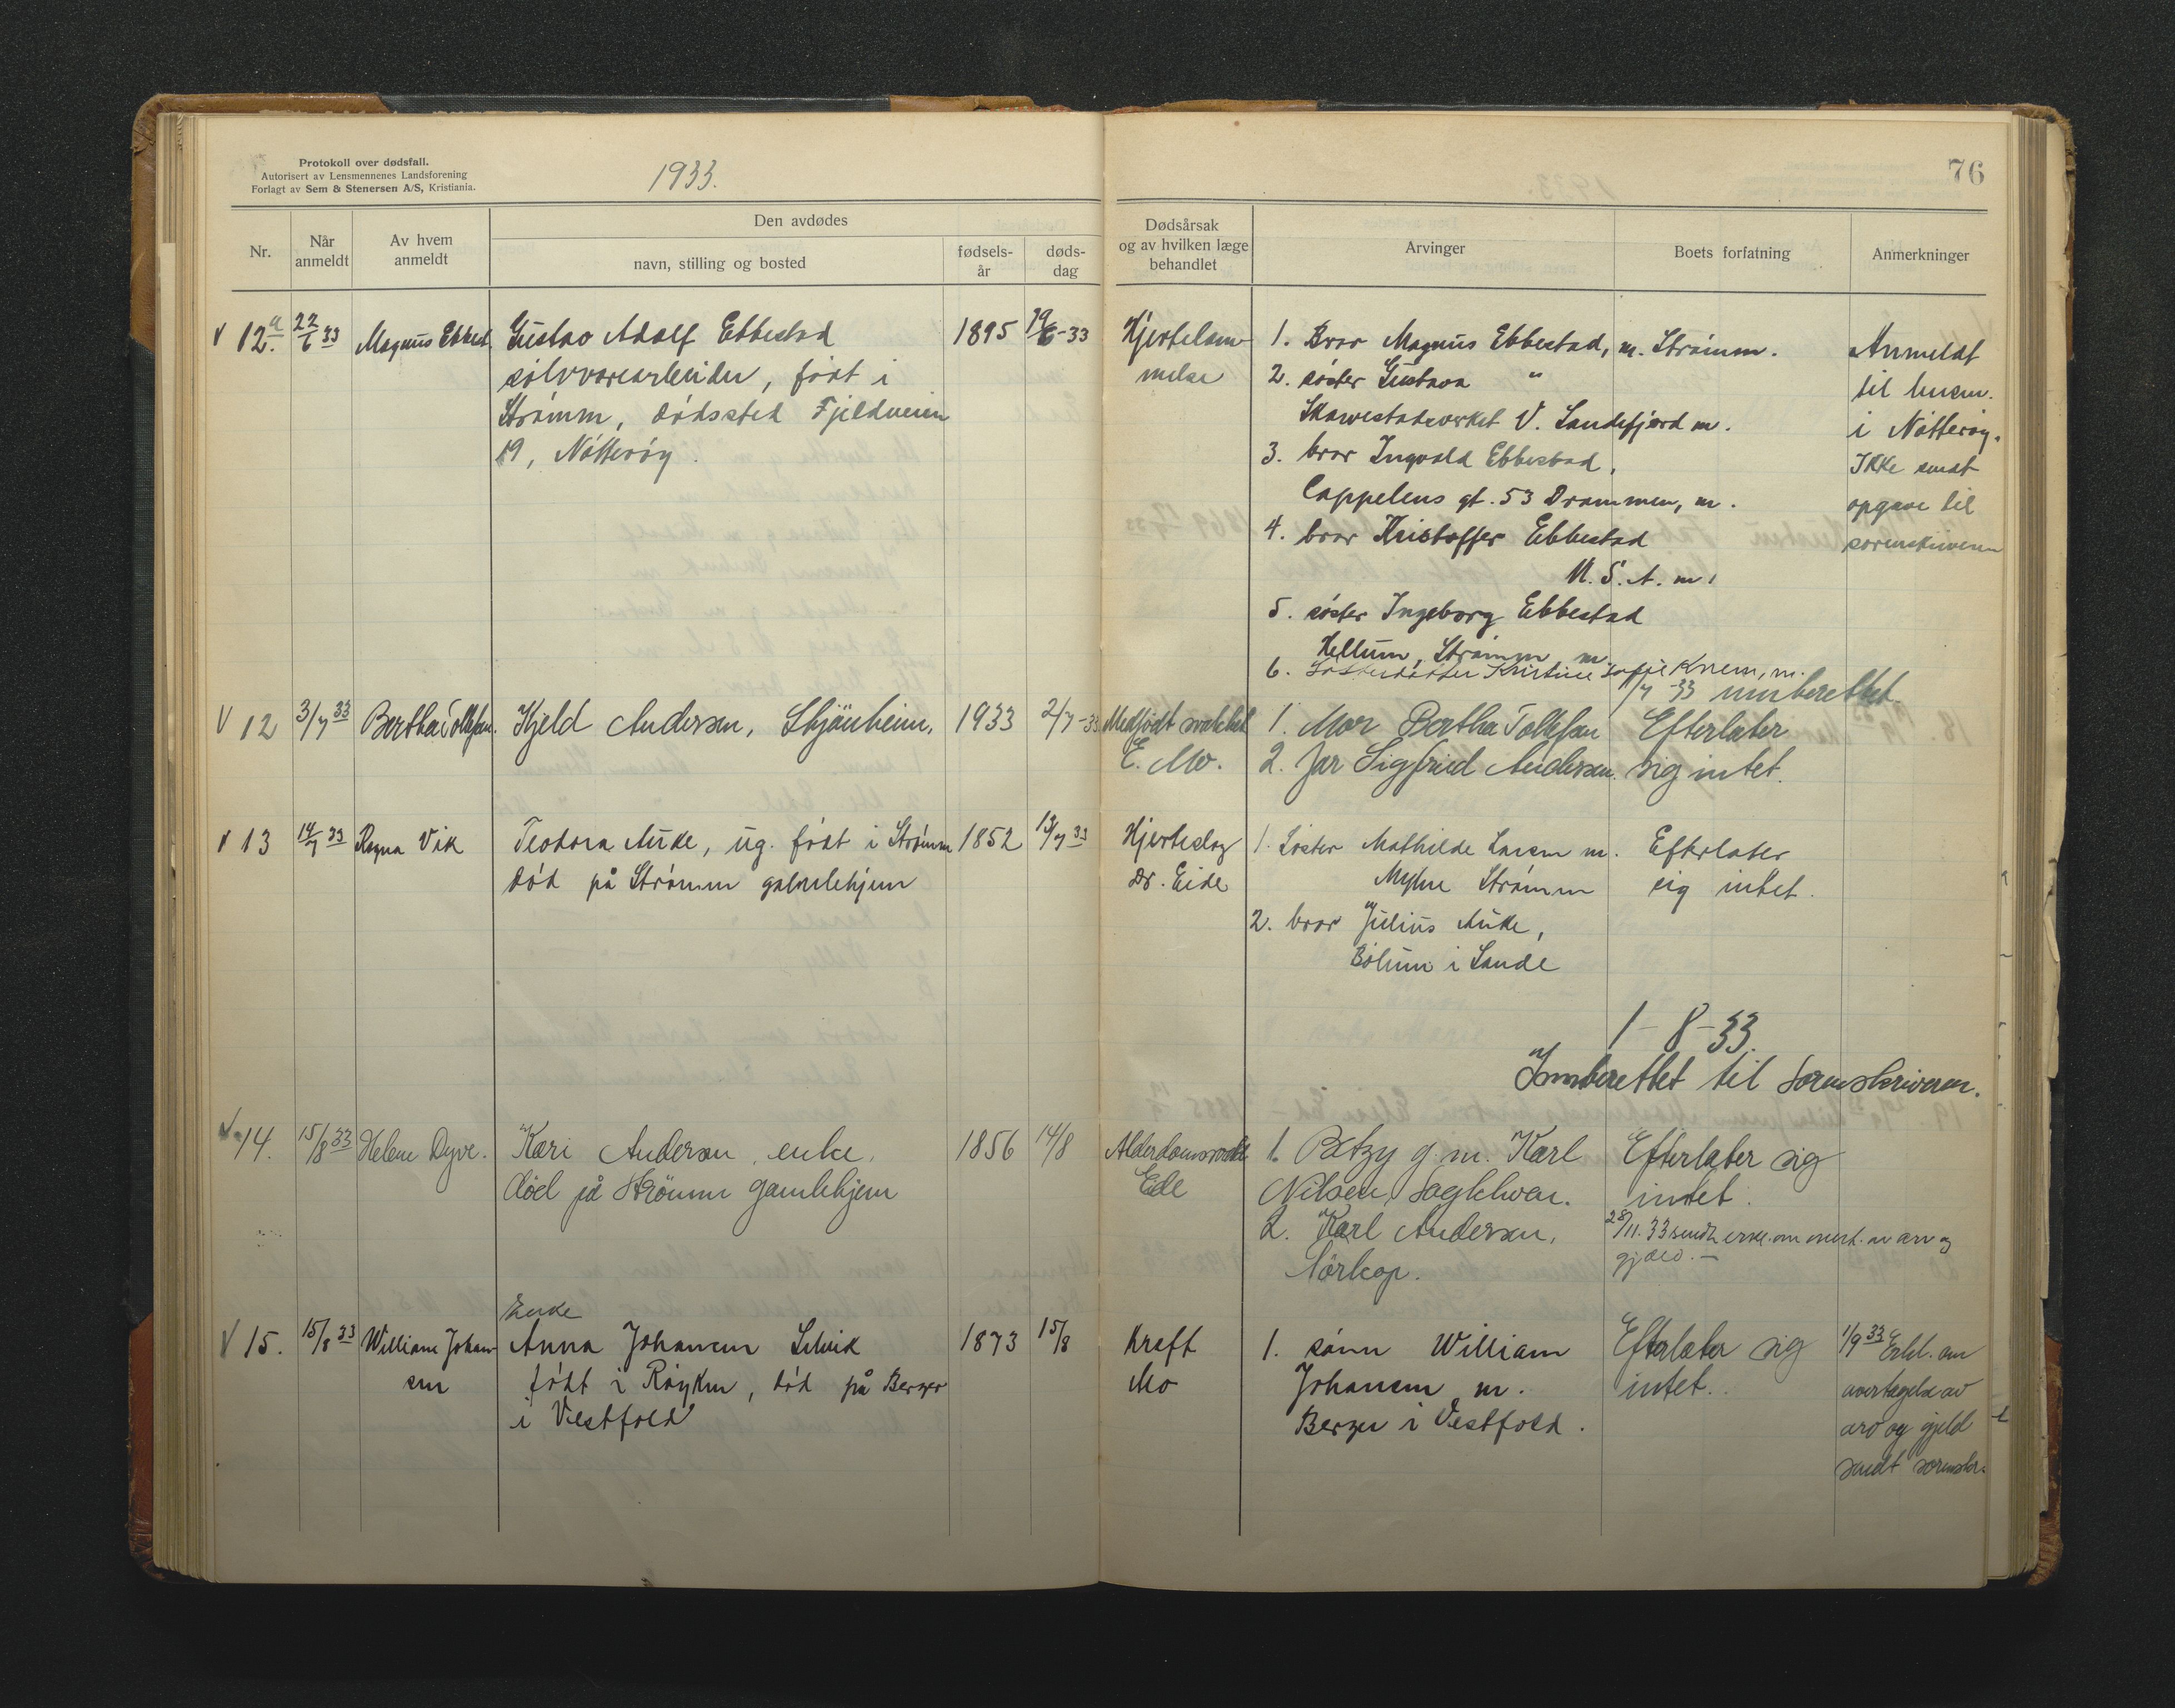 Protokoll over dødsfall.
Autorisert av Lensmennenes Landsforening
Forlagt av Sem & Stenersen A/S, Kristiania.
1933.
76
Nr.
Når anmeldt
Av hvem anmeldt
Den avdødes
navn, stilling og bosted
fødsels-år
døds-dag
Dødsårsak og av hvilken læge behandlet
Arvinger
Boets forfatning
Anmerkninger
12a. 22/6 33 Magnus Ebbest. Gustav Adolf Ebbestad 1895 19/6-33
sølvvarearbeider, født i
Strømm, dødssted Fjeldveien
19, Nøtterøy.
Hjertelam-
melse
1. Bror Magnus Ebbestad, m. Strømm.
2. søster Gustava "
V. Sandefjord m.
3. bror Ingvald Ebbestad,
Cappelens gt. 53 Drammen, m.
4. bror Kristoffer Ebbestad
U.S.A. m.
5. søster Ingeborg Ebbestad
Hellum, Strømm m.
6. Søsterdatter Kristine Sofie m.
Anmeldt
til lensm.
i Nøtterøy.
Ikke sendt
opgave til
sorenskriveren
1/7 33 innberettet.
12 3/7 33 Bertha Tollefsen. Kjeld Andersen, Skjønheim. 1933 2/7-33
Medfødt svakhet
E. Mo.
1. Mor Bertha Tollefsen
2. Far Sigfried Andersen.
Efterlater
sig intet.
13 14/7 33 Ragna Vik Teodora Auke, ug. født i Strømm 1852 13/7 33
død på Strømm gamlehjem
Hjerteslag
Dr. Eide
1. Søster Mathilde Larsen m.
Myhre Strømm
2. bror Julius Auke,
Bølum i Sande
Efterlater
sig intet.
1-8-33.
Innberettet til Sorenskriveren.
14. 15/8 33 Helene Dyve. Kari Andersen, enke, 1856 14/8
død på Strømm gamlehjem
Eide
1. Betzy g. m. Karl
Nilsen,
2. Karl Andersen,
Nörkop.
Efterlater sig
intet.
28/11.33 sendt erkl. om overt. av arv og
gjæld.-
15. 15/8 33 William Johan-
sen
Enke
Anna Johansen Selvik 1873 15/8
født i Røyken, død på Berger
i Vestfold
Kreft
Mo
1. sønn William
Johansen m.
Berger i Vestfold.
Efterlater sig
intet.
1/9 33 Erkl. om
overtagelse av
arv og gjeld
sendt sorenskr.